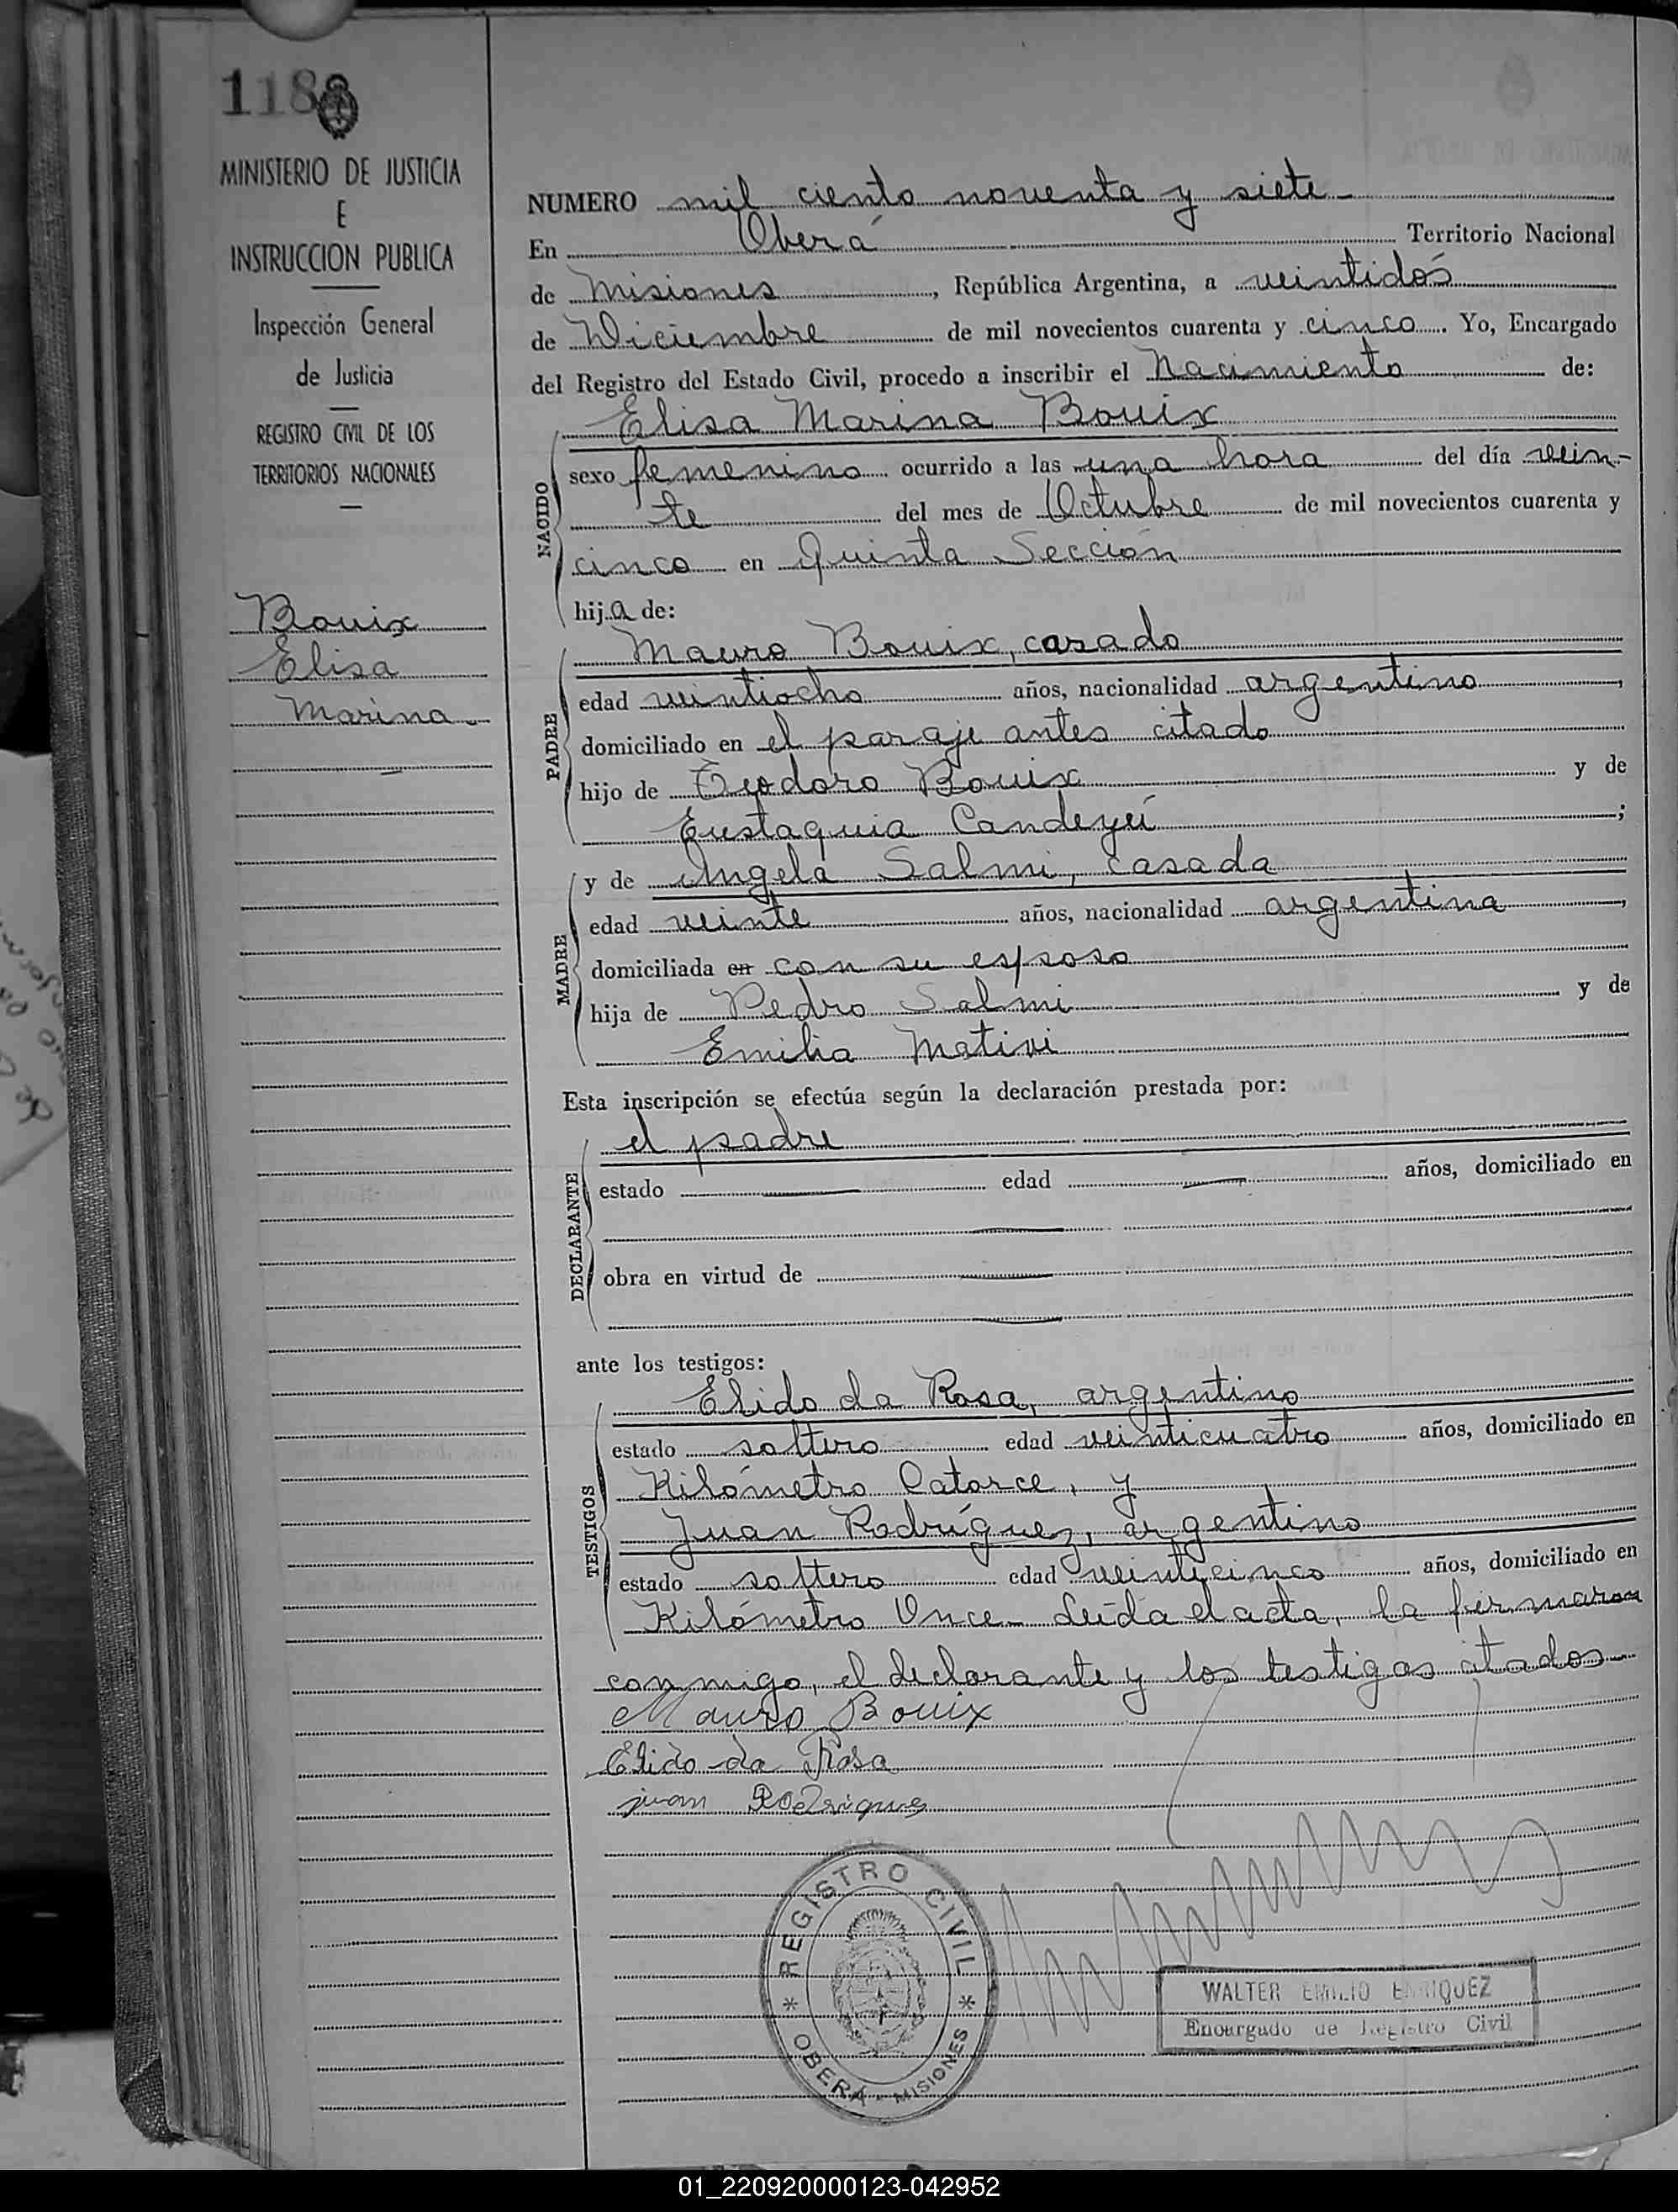 118
MINISTERIO DE JUSTICIA
E
INSTRUCCION PUBLICA
Inspección General
de Justicia
REGISTRO CIVIL DE LOS
TERRITORIOS NACIONALES
Bouix
Elisa
Marina
NUMERO mil ciento noventa y siete
En Oberá Territorio Nacional
de Misiones, República Argentina, a veintidós
de Diciembre de mil novecientos cuarenta y cinco. Yo, Encargado
del Registro del Estado Civil, procedo a inscribir el Nacimiento de:
Elisa Marina Bouix
NACIDO
sexo femenino ocurrido a las una hora del día vein-
te del mes de Octubre de mil novecientos cuarenta y
cinco en Quinta Sección
hija de:
PADRE
Mauro Bouix, casado
edad veintiocho años, nacionalidad argentino,
domiciliado en el paraje antes citado
hijo de Teodoro Bouix y de
Eustaquia Candeyú;
MADRE
y de Angela Salmi, casada
edad veinte años, nacionalidad argentina,
domiciliada en con su esposo
hija de Pedro Salmi y de
Emilia Mativi
Esta inscripción se efectúa según la declaración prestada por:
DECLARANTE
el padre
estado edad años, domiciliado en
obra en virtud de
ante los testigos:
TESTIGOS
Elido da Rosa, argentino
estado soltero edad veinticuatro años, domiciliado en
Kilómetro Catorce, y
Juan Rodríguez, argentino
estado soltero edad veinticinco años, domiciliado en
Kilómetro Once- Leída el acta, la firmaron
conmigo, el declarante y los testigos citados
Mauro Bouix
Elido da Rosa
juan Rodrigues
REGISTRO CIVIL
OBERA - MISIONES
WALTER EMILIO ENRIQUEZ
Encargado de Registro Civil
01_220920000123-042952